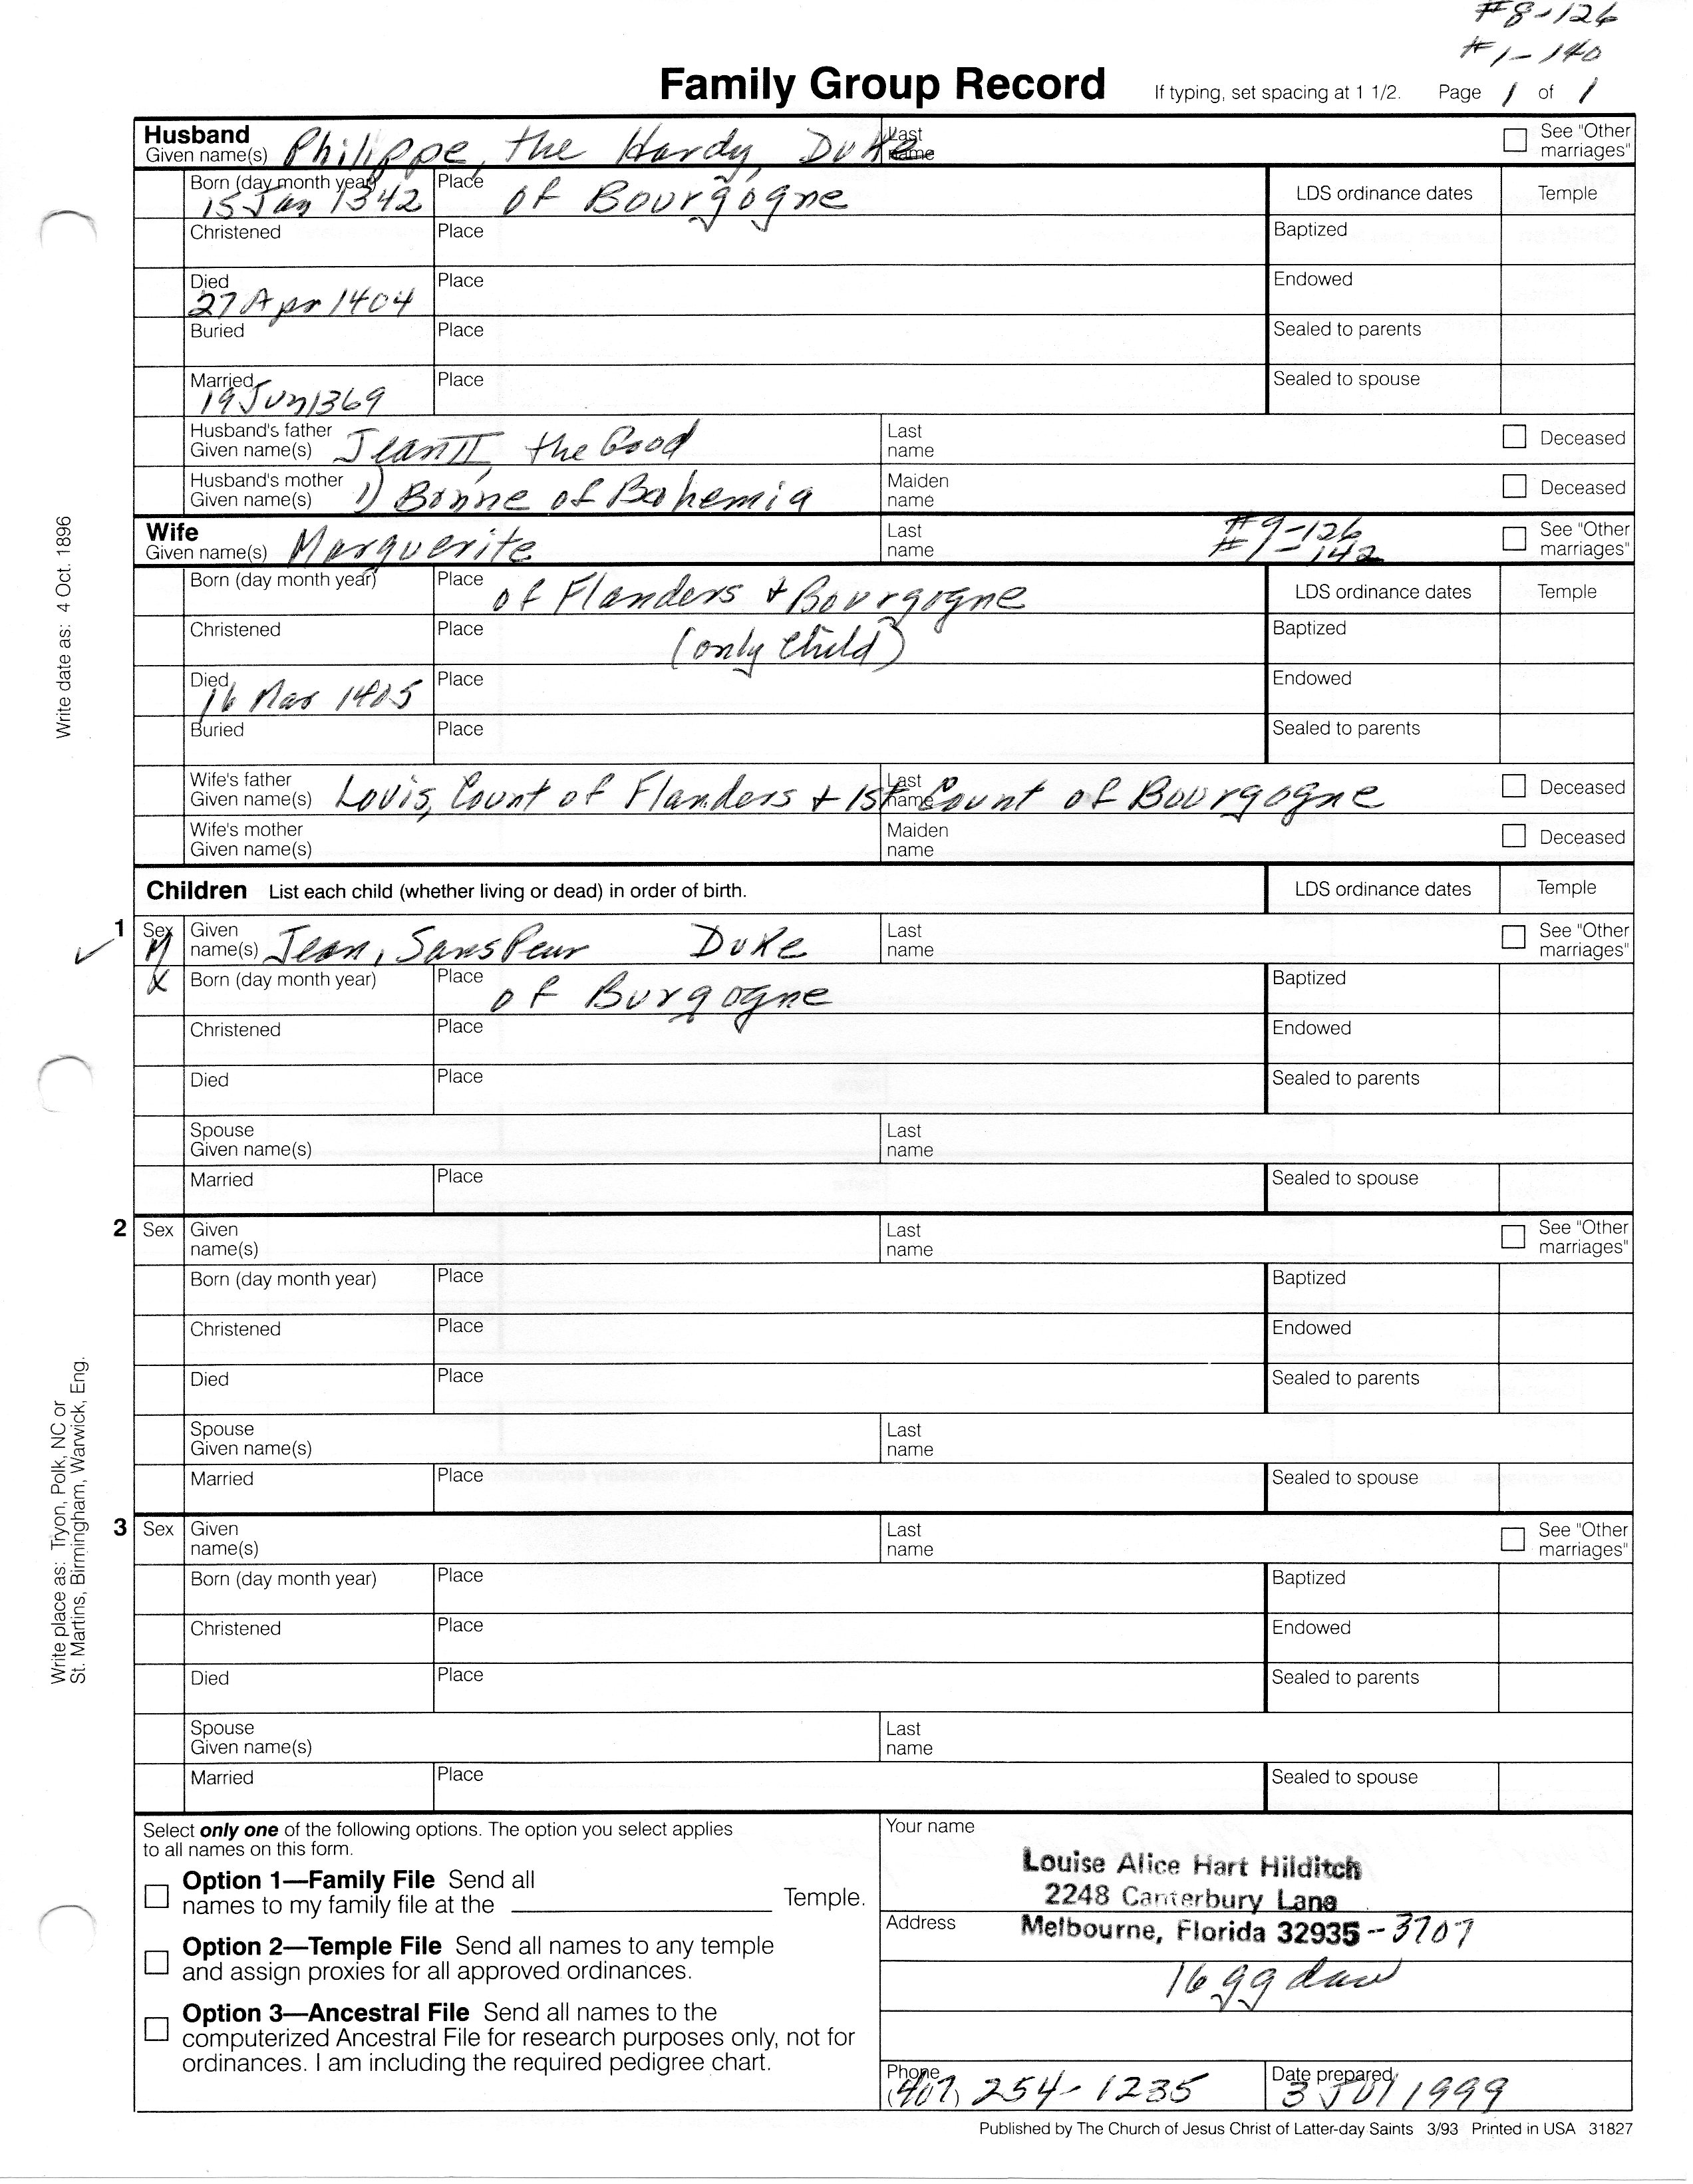 #8-126
#1-140
Family Group Record If typing, set spacing at 1 1/2. Page 1 of 1
Husband
Given name(s) Philippe, the Hardy, Duke Last name See "Other marriages"
Born (day month year) 15 Jan 1342 Place of Bourgogne LDS ordinance dates Temple
Christened Place Baptized
Died 27 Apr 1404 Place Endowed
Buried Place Sealed to parents
Married 19 Jun 1369 Place Sealed to spouse
Husband's father Given name(s) Jean II, the Good Last name Deceased
Husband's mother Given name(s) 1) Bonne of Bohemia Maiden name Deceased
Wife
Given name(s) Marguerite Last name #9-126 #1-142 See "Other marriages"
Born (day month year) Place of Flanders + Bourgogne LDS ordinance dates Temple
Christened Place (only Child) Baptized
Died 16 Mar 1405 Place Endowed
Buried Place Sealed to parents
Wife's father Given name(s) Louis, Count of Flanders + 1st Count of Bourgogne Last name Deceased
Wife's mother Given name(s) Maiden name Deceased
Children List each child (whether living or dead) in order of birth. LDS ordinance dates Temple
1 Sex M Given name(s) Jean, Sans Peur Duke Last name See "Other marriages"
X Born (day month year) Place of Burgogne Baptized
Christened Place Endowed
Died Place Sealed to parents
Spouse Given name(s) Last name
Married Place Sealed to spouse
2 Sex Given name(s) Last name See "Other marriages"
Born (day month year) Place Baptized
Christened Place Endowed
Died Place Sealed to parents
Spouse Given name(s) Last name
Married Place Sealed to spouse
3 Sex Given name(s) Last name See "Other marriages"
Born (day month year) Place Baptized
Christened Place Endowed
Died Place Sealed to parents
Spouse Given name(s) Last name
Married Place Sealed to spouse
Write date as: 4 Oct. 1896
Write place as: Tryon, Polk, NC or
St. Martins, Birmingham, Warwick, Eng.
Select only one of the following options. The option you select applies
to all names on this form.
Option 1—Family File Send all
names to my family file at the Temple.
Option 2—Temple File Send all names to any temple
and assign proxies for all approved ordinances.
Option 3—Ancestral File Send all names to the
computerized Ancestral File for research purposes only, not for
ordinances. I am including the required pedigree chart.
Your name
Louise Alice Hart Hilditch
2248 Canterbury Lane
Address Melbourne, Florida 32935-3707
16 gg dau
Phone (407) 254-1235 Date prepared 3 Jul 1999
Published by The Church of Jesus Christ of Latter-day Saints 3/93 Printed in USA 31827